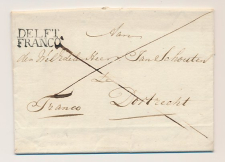 DELFT
FRANCO
Aan
den Wel Edele Heer Jan Schouten
te
Franco Dortrecht